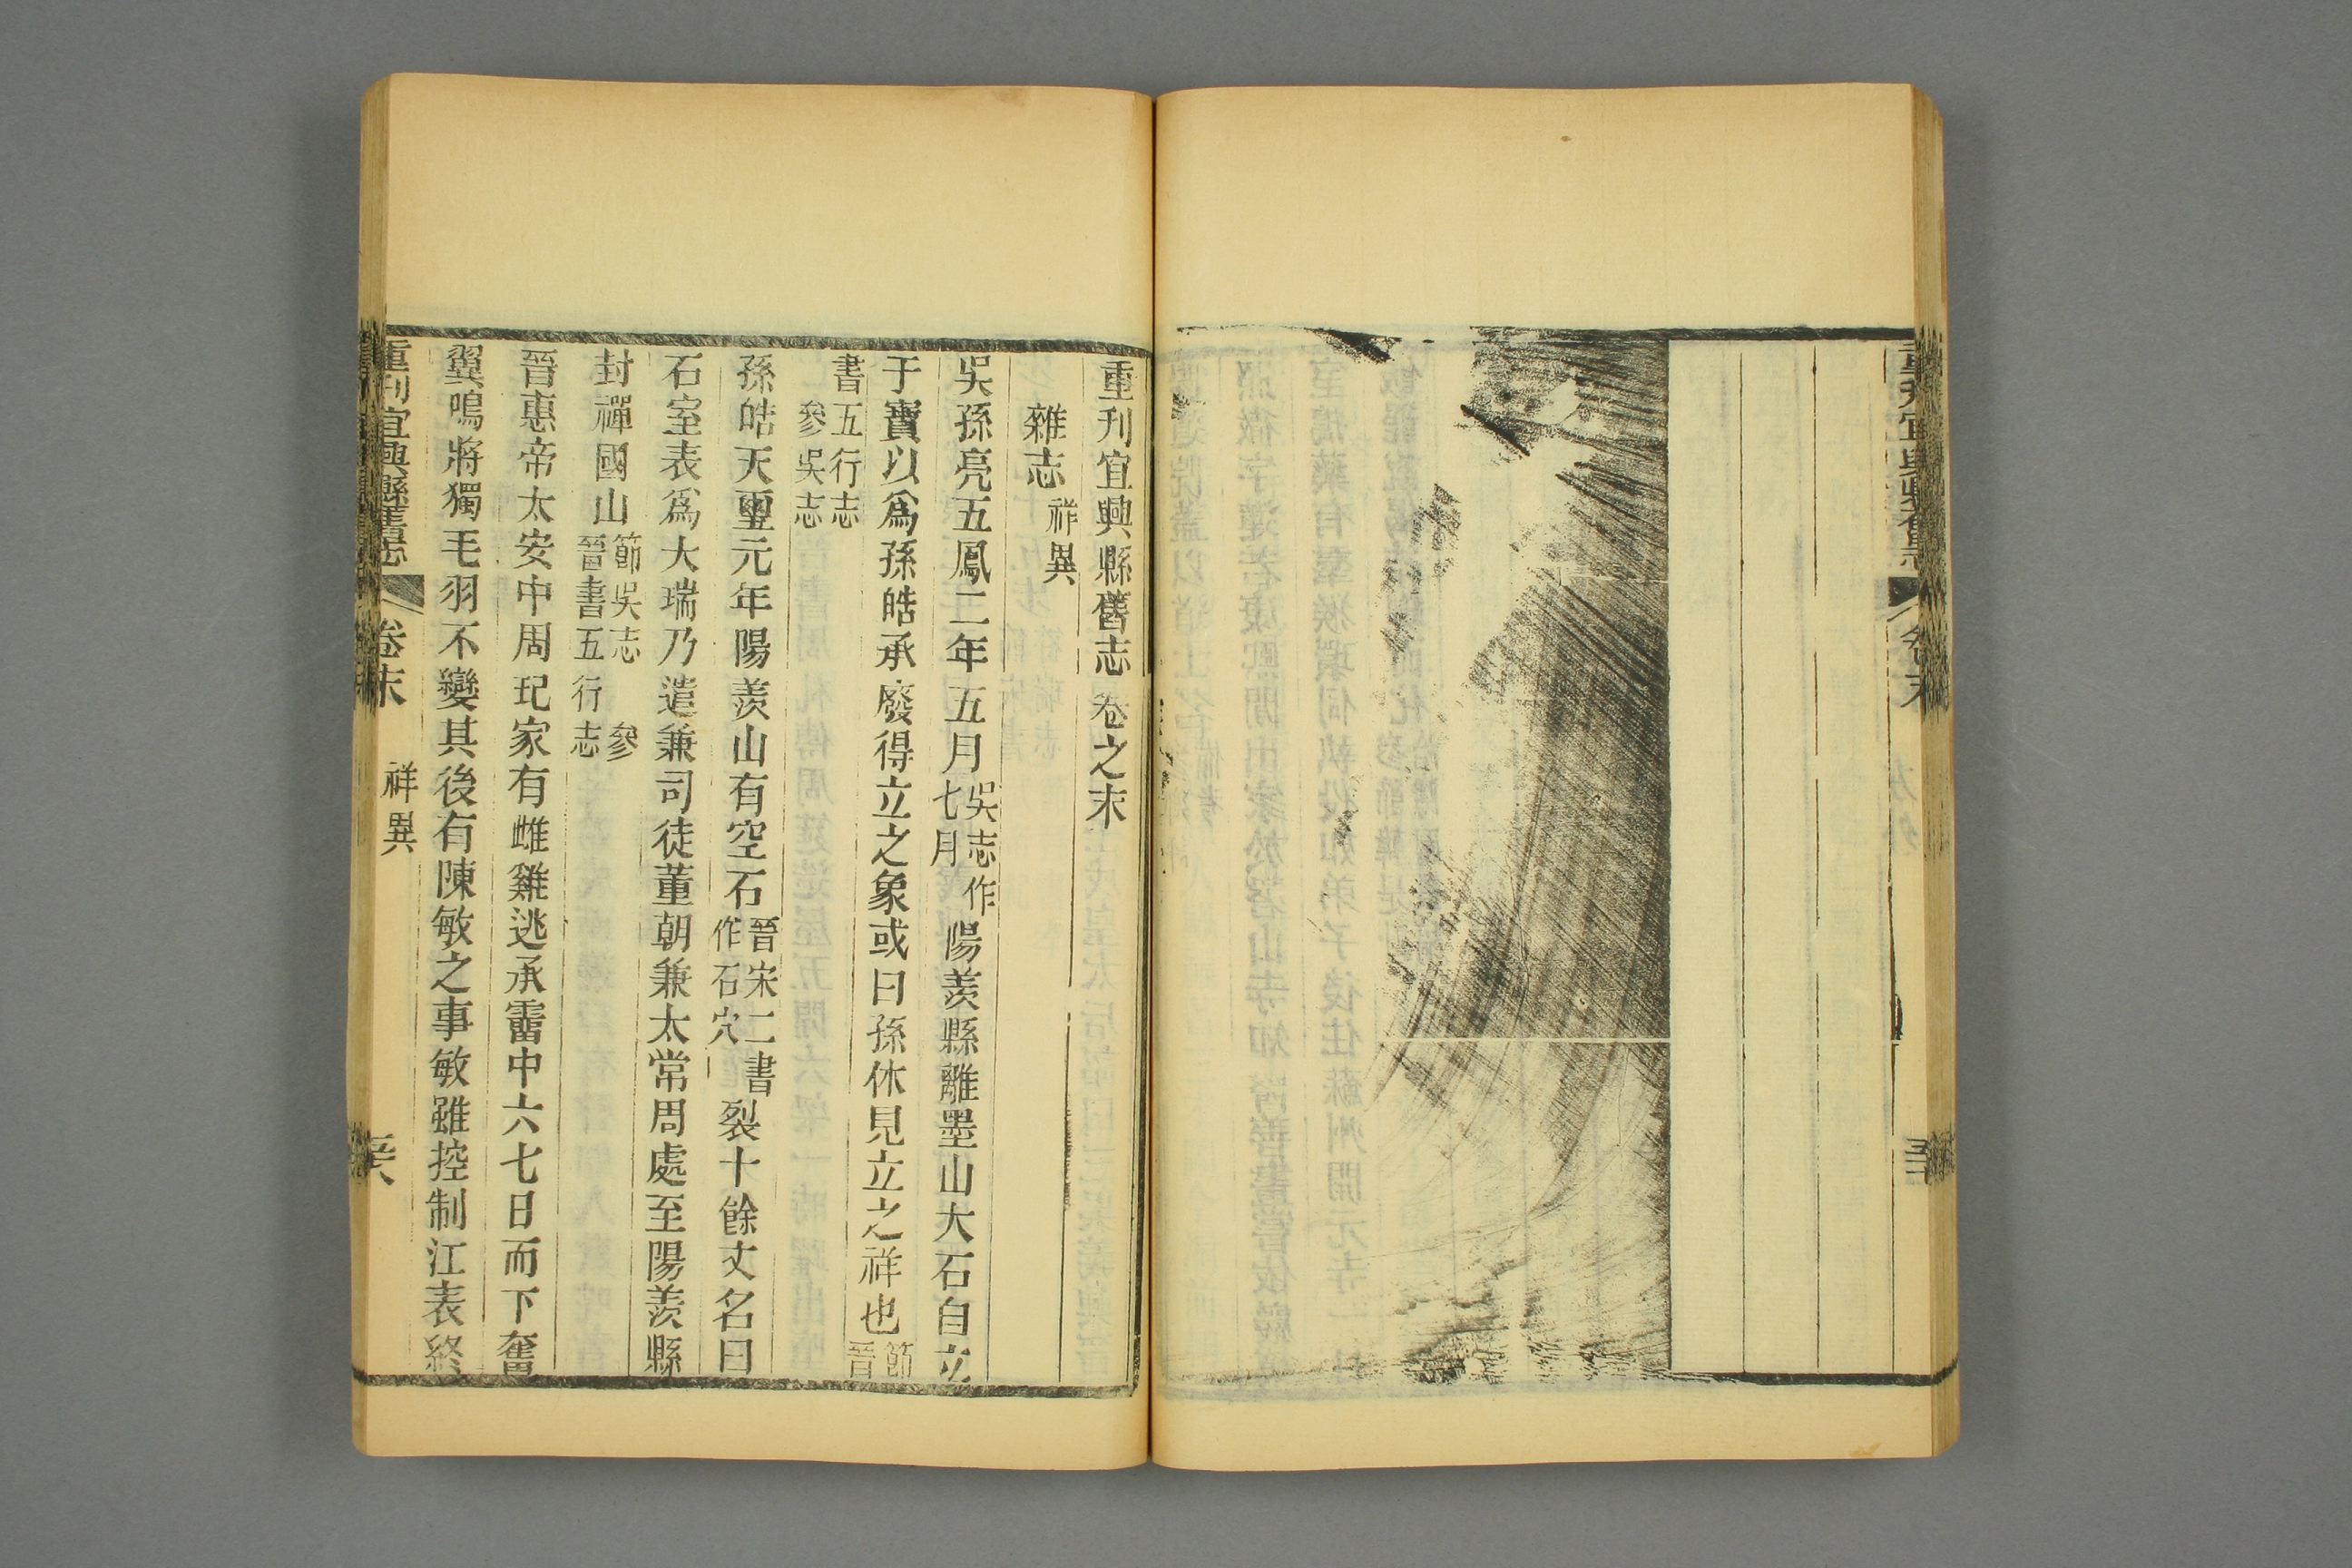 重刊宜興縣舊志卷之末
雜志 祥異
吳孫亮五鳳二年五月吳志作七月陽羨縣離墨山大石自立
于寶以爲孫皓承廢得立之象或曰孫休見立之祥也節晉
書五行志參吳志
孫皓天璽元年陽羨山有空石晉宋二書作石穴裂十餘丈名曰
石室表爲大瑞乃遣兼司徒董朝兼太常周處至陽羨縣
封禪國山節吳志參晉書五行志
晉惠帝太安中周玘家有雌雞逃承霤中六七日而下奮
翼鳴將獨毛羽不變其後有陳敏之事敏雖控制江表終
重刊宜興縣舊志 卷末 祥異